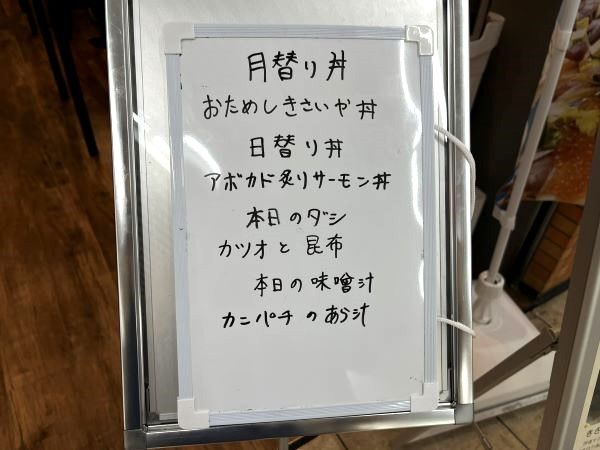 月替り丼
おためしきさいや丼
日替り丼
アボカド炙りサーモン丼
本日のダシ
カツオと昆布
本日の味噌汁
カンパチのあら汁